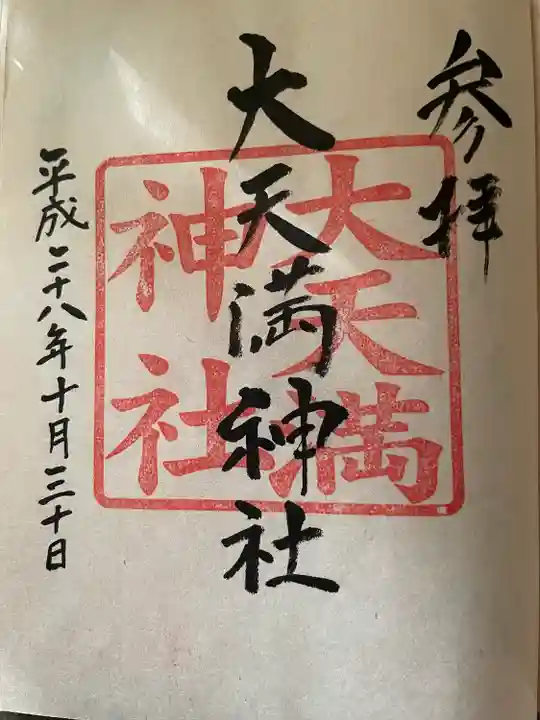 参拝
大天満神社
大天満
神社
平成二十八年十月三十日